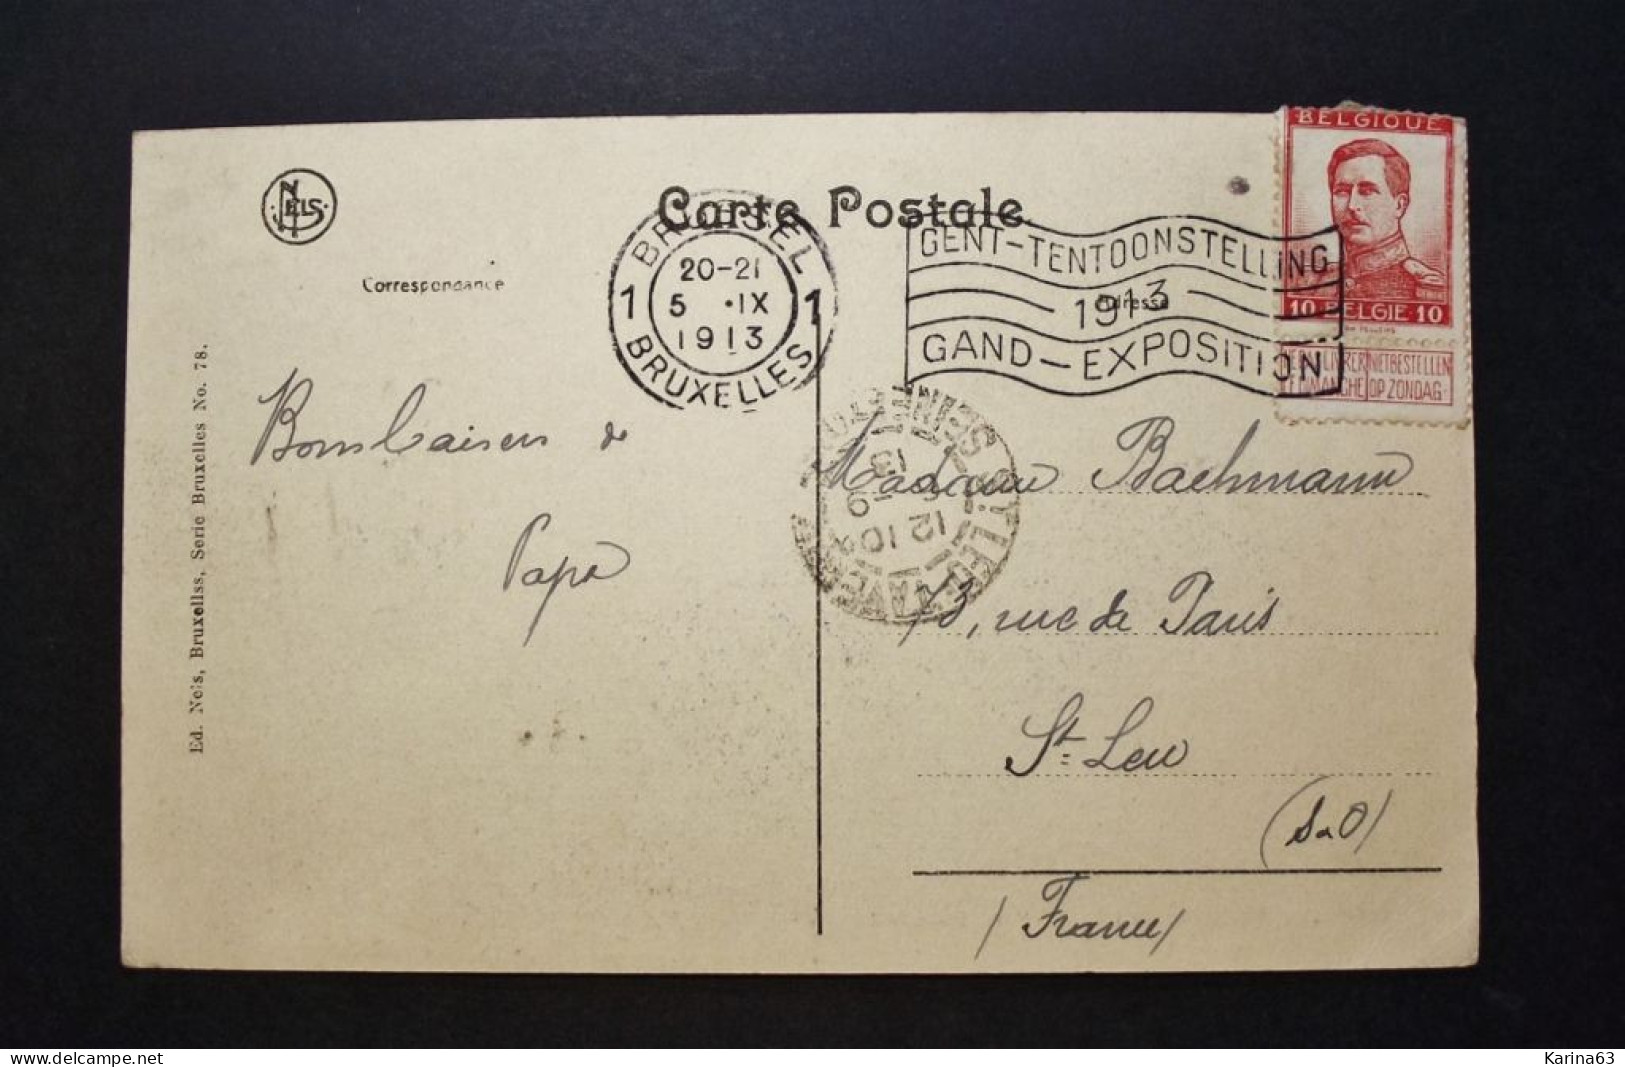 NELS
Carte Postale
Correspondance
Adresse
BRUSSEL
20-21
1 5 ·IX 1
1913
BRUXELLES
GENT-TENTOONSTELLING
1913
GAND-EXPOSITION
BELGIQUE
10 BELGIE 10
NE PAS LIVRER LE DIMANCHE
NIET BESTELLEN OP ZONDAG
Ed. Nels, Bruxellss, Serie Bruxelles No. 78.
Bons baisers de
Papa
ST LEU-TAVERNY
SEINE ET OISE
12 10
6-9
13
Madame Bachmann
13, rue de Paris
St. Leu
(S&O)
/France/
www.delcampe.net
Karina63